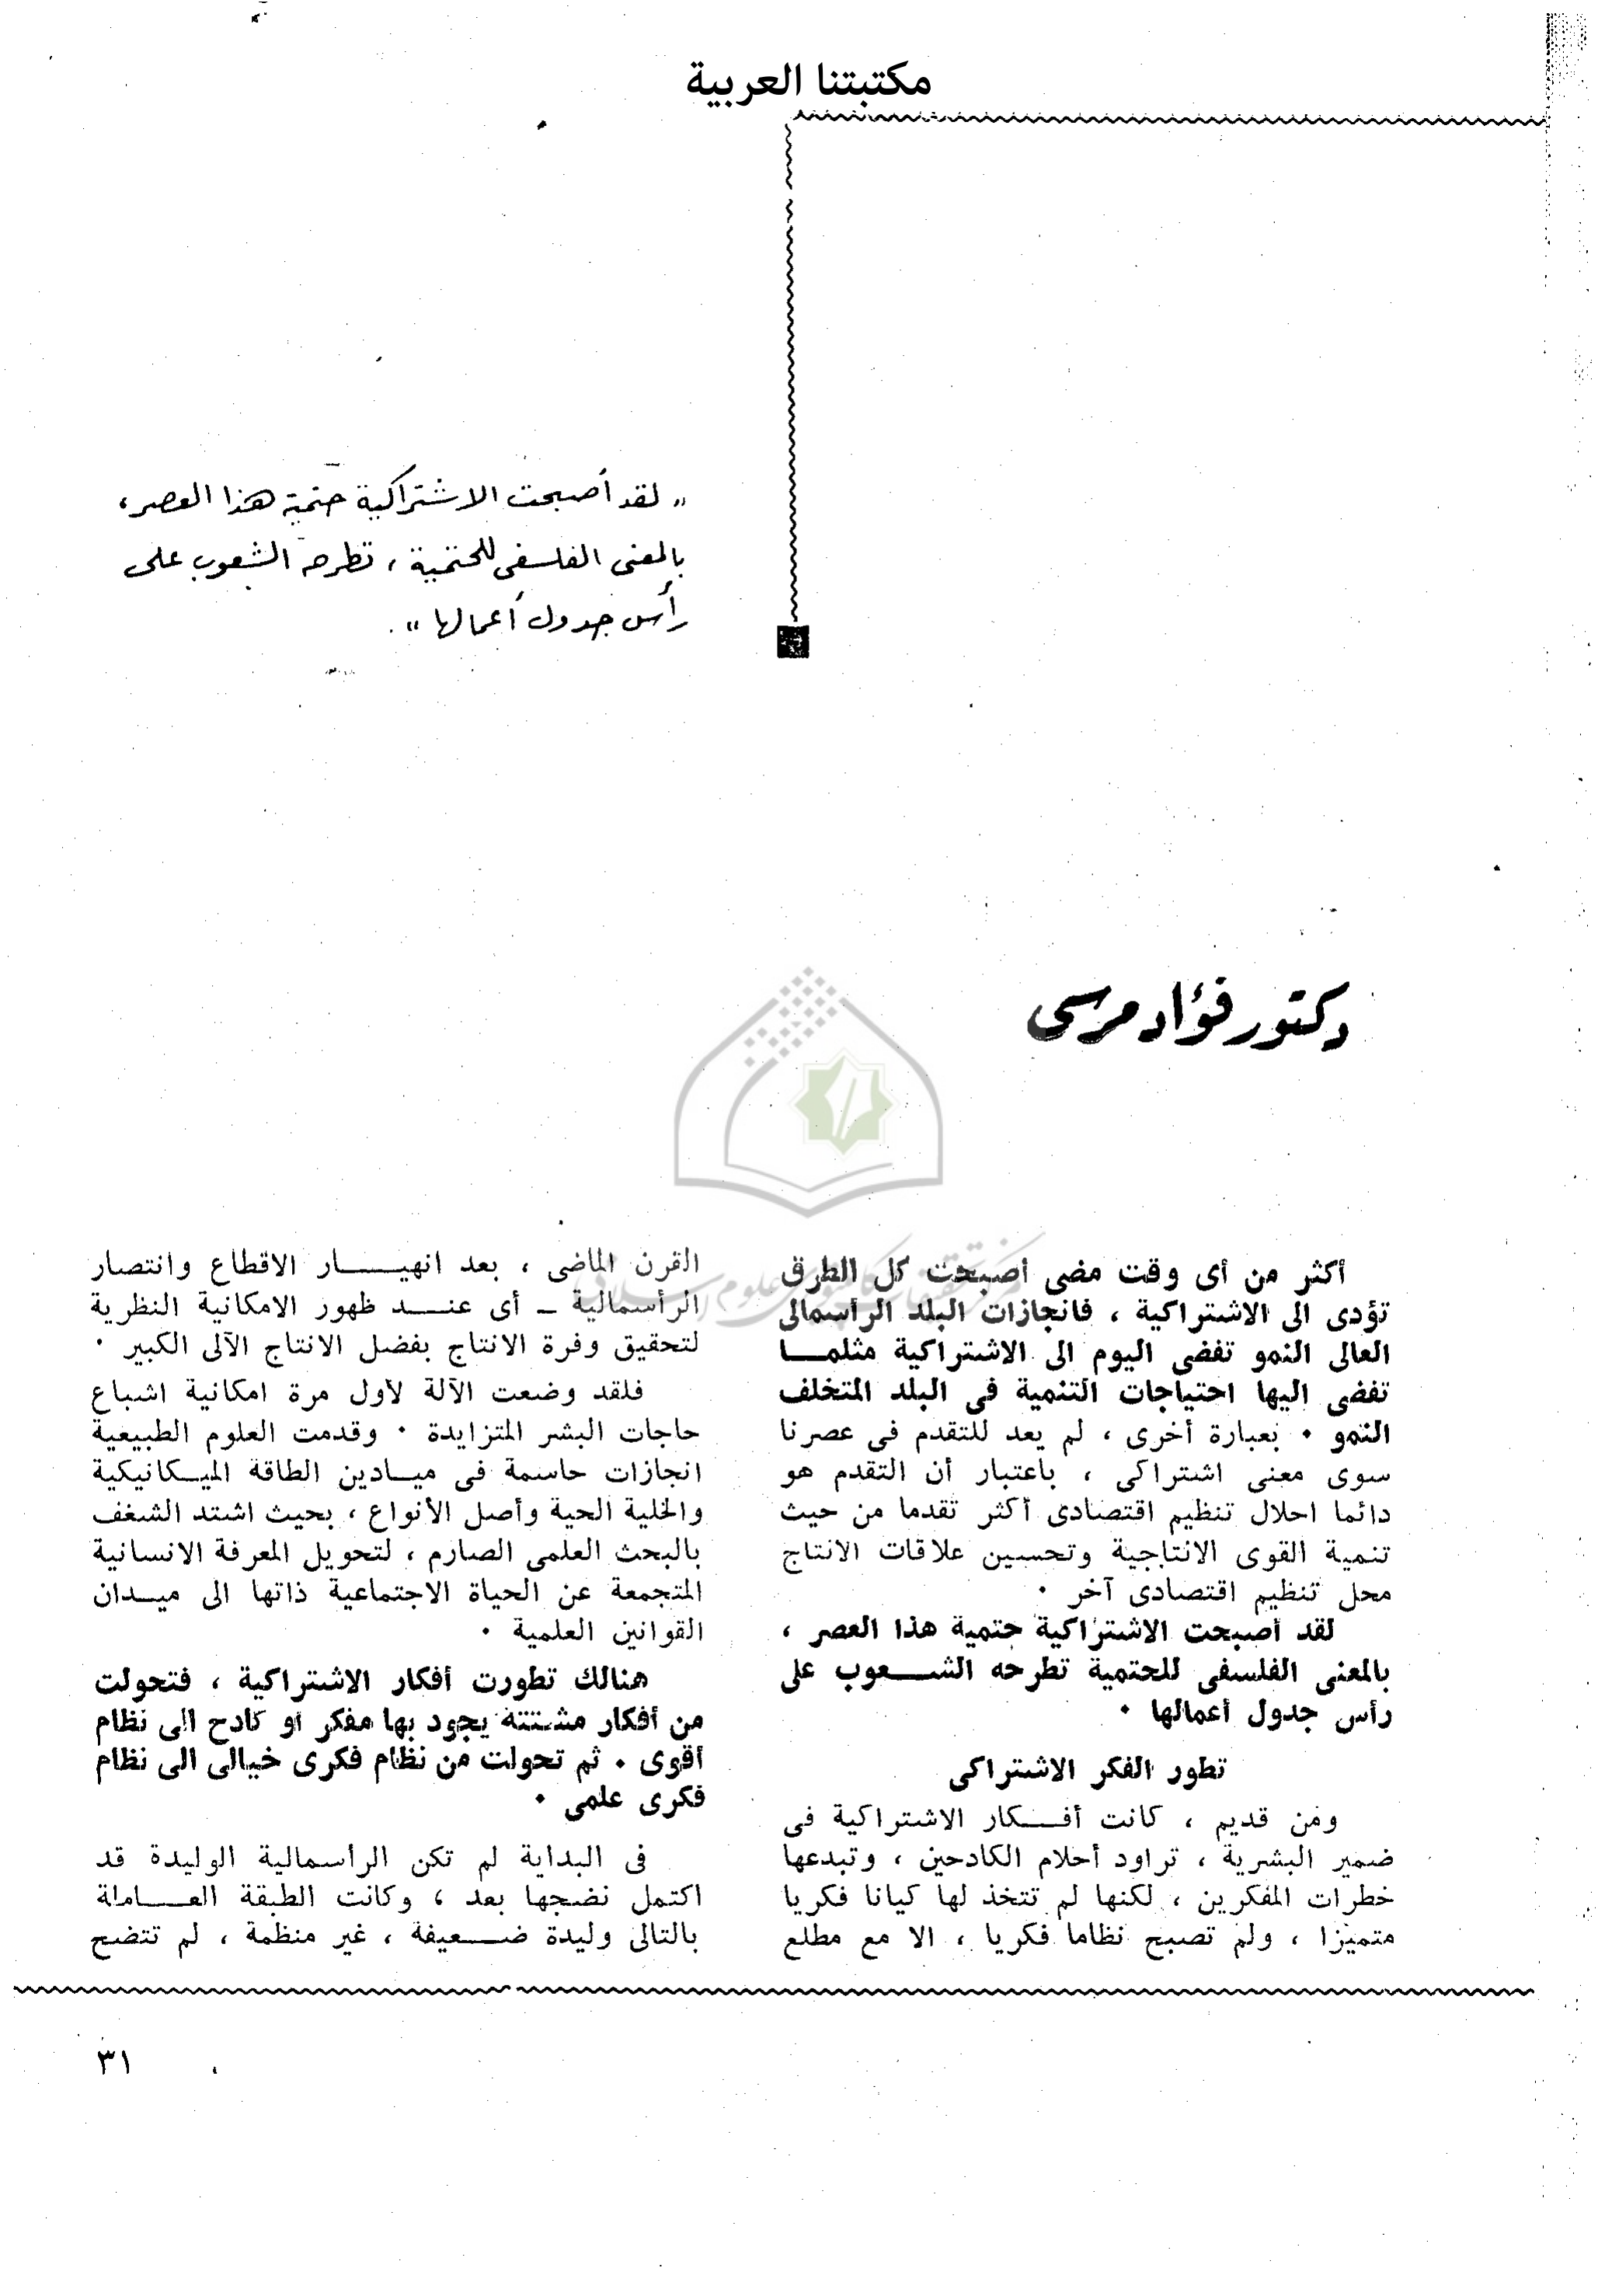 مكتبتنا العربية
„ لقد أصبحت الاشتراكية حتمية هذا العصر ،
بالمعنى الفلسفى للحتمية ، تطرحه الشعوب على
رأس جدول أعمالها " .
دكتور فؤاد مرسى
أكثر من أى وقت مضى أصبحت كل الطرق
تؤدى الى الاشتراكية ، فانجازات البلد الرأسمالى
العالى النمو تفضى اليوم الى الاشتراكية مثلمـــا
تفضى اليها احتياجات التنمية فى البلد المتخلف
النمو ٠ بعبارة أخرى ، لم يعد للتقدم فى عصرنا
سوى معنى اشتراكى ، باعتبار أن التقدم هو
دائما احلال تنظيم اقتصادى أكثر تقدما من حيث
تنمية القوى الانتاجية وتحسين علاقات الانتاج
محل تنظيم اقتصادى آخر ٠
لقد أصبحت الاشتراكية حتمية هذا العصر ،
بالمعنى الفلسفى للحتمية تطرحه الشـــعوب على
رأس جدول أعمالها ٠
تطور الفكر الاشتراكى
ومن قديم ، كانت أفـــكار الاشتراكية فى
ضمير البشرية ، تراود أحلام الكادحين ، وتبدعها
خطرات المفكرين ، لكنها لم تتخذ لها كيانا فكريا
متميزا ، ولم تصبح نظاما فكريا ، الا مع مطلع
القرن الماضى ، بعد انهيـــــار الاقطاع وانتصار
الرأسمالية ــ أى عنـــد ظهور الامكانية النظرية
لتحقيق وفرة الانتاج بفضل الانتاج الآلى الكبير ٠
فلقد وضعت الآلة لأول مرة امكانية اشباع
حاجات البشر المتزايدة ٠ وقدمت العلوم الطبيعية
انجازات حاسمة فى ميـادين الطاقة الميـكانيكية
والخلية الحية وأصل الأنواع ، بحيث اشتد الشغف
بالبحث العلمى الصارم ، لتحويل المعرفة الانسانية
المتجمعة عن الحياة الاجتماعية ذاتها الى ميـدان
القوانين العلمية ٠
هنالك تطورت أفكار الاشتراكية ، فتحولت
من أفكار مشتتة يجود بها مفكر أو كادح الى نظام
أقوى ٠ ثم تحولت من نظام فكرى خيالى الى نظام
فكرى علمى ٠
فى البداية لم تكن الرأسمالية الوليدة قد
اكتمل نضجها بعد ، وكانت الطبقة العـــاملة
بالتالى وليدة ضـــعيفة ، غير منظمة ، لم تتضح
٣١